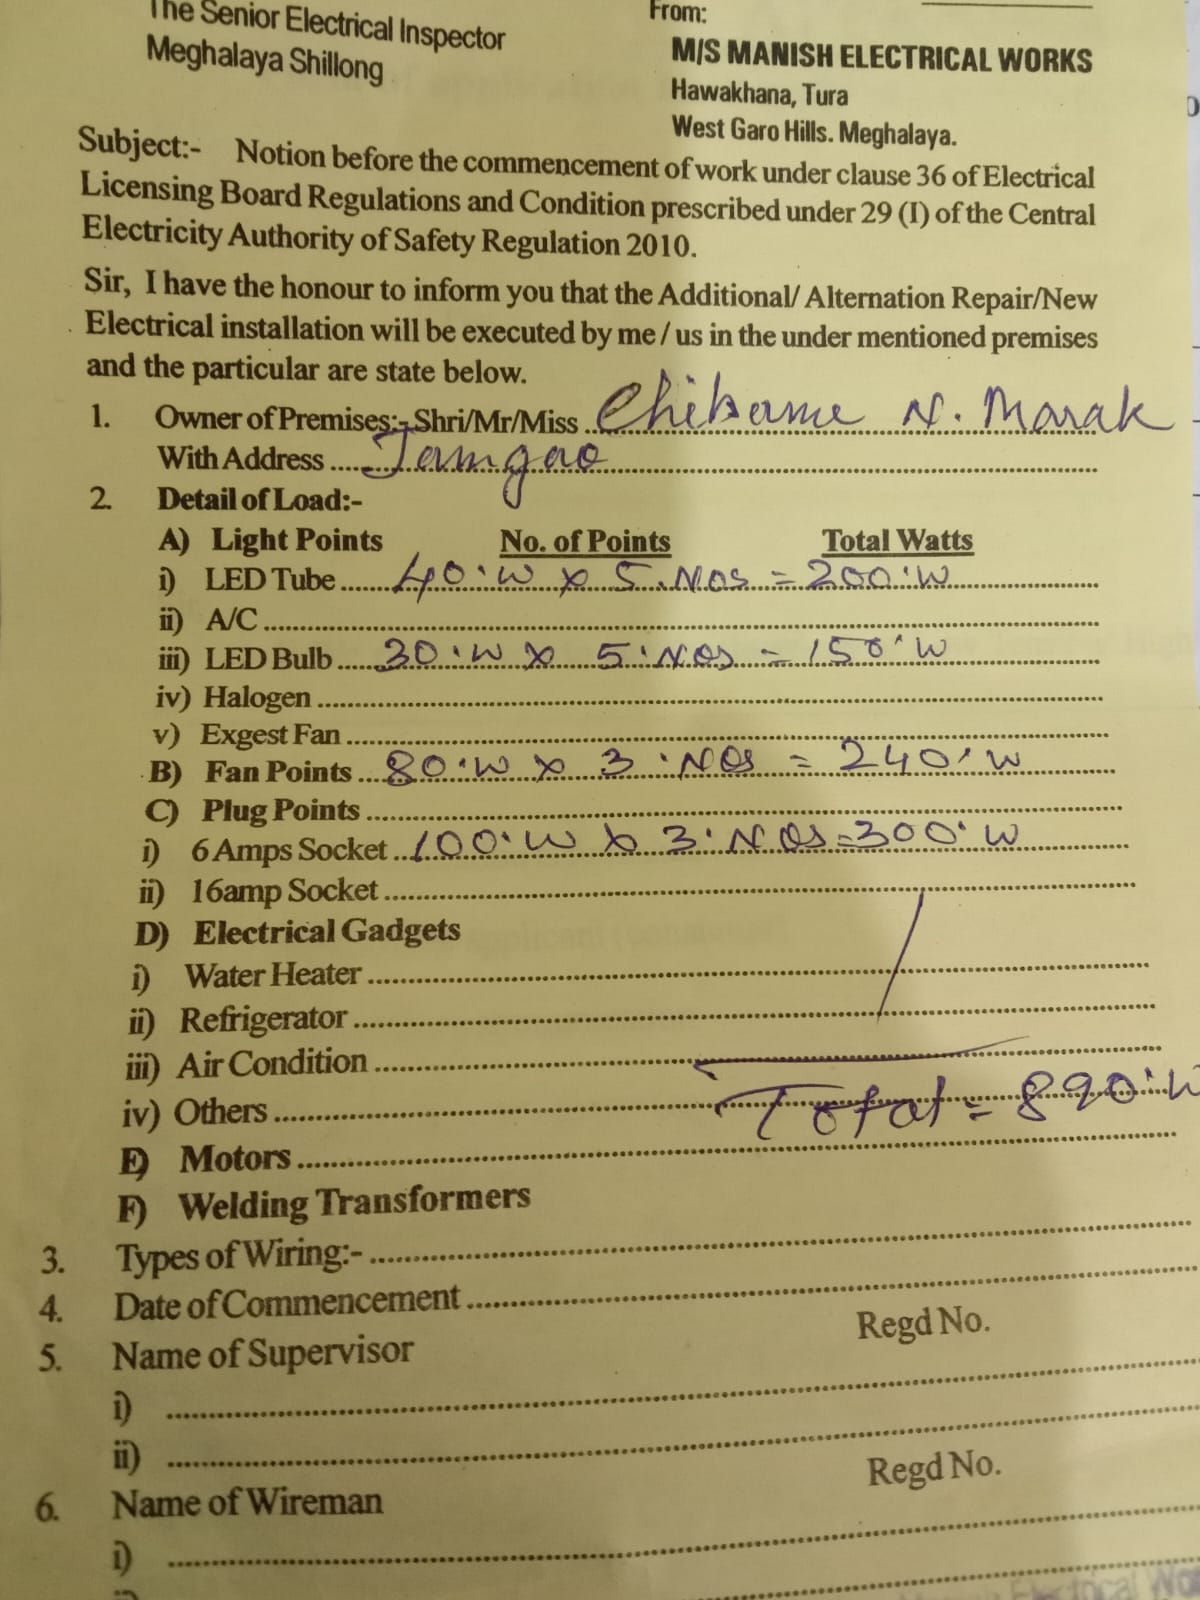 The Senior Electrical Inspector
Meghalaya Shillong
From:
M/S MANISH ELECTRICAL WORKS
Hawakhana, Tura
West Garo Hills. Meghalaya.
Subject:- Notion before the commencement of work under clause 36 of Electrical
Licensing Board Regulations and Condition prescribed under 29 (I) of the Central
Electricity Authority of Safety Regulation 2010.
Sir, I have the honour to inform you that the Additional/ Alternation Repair/New
Electrical installation will be executed by me / us in the under mentioned premises
and the particular are state below.
1. Owner of Premises:- Shri/Mr/Miss Chibame N. Marak
With Address Jamgao
2. Detail of Load:-
A) Light Points No. of Points Total Watts
i) LED Tube 40.W x 5.NOS = 200.W
ii) A/C
iii) LED Bulb 30.W x 5.NOS = 150.W
iv) Halogen
v) Exgest Fan
B) Fan Points 80.W x 3.NOS = 240.W
C) Plug Points
i) 6 Amps Socket 100.W x 3.NOS = 300.W
ii) 16amp Socket
D) Electrical Gadgets
i) Water Heater
ii) Refrigerator
iii) Air Condition
iv) Others Total = 890.W
E) Motors
F) Welding Transformers
3. Types of Wiring:-
4. Date of Commencement
5. Name of Supervisor Regd No.
i)
ii)
6. Name of Wireman Regd No.
i)